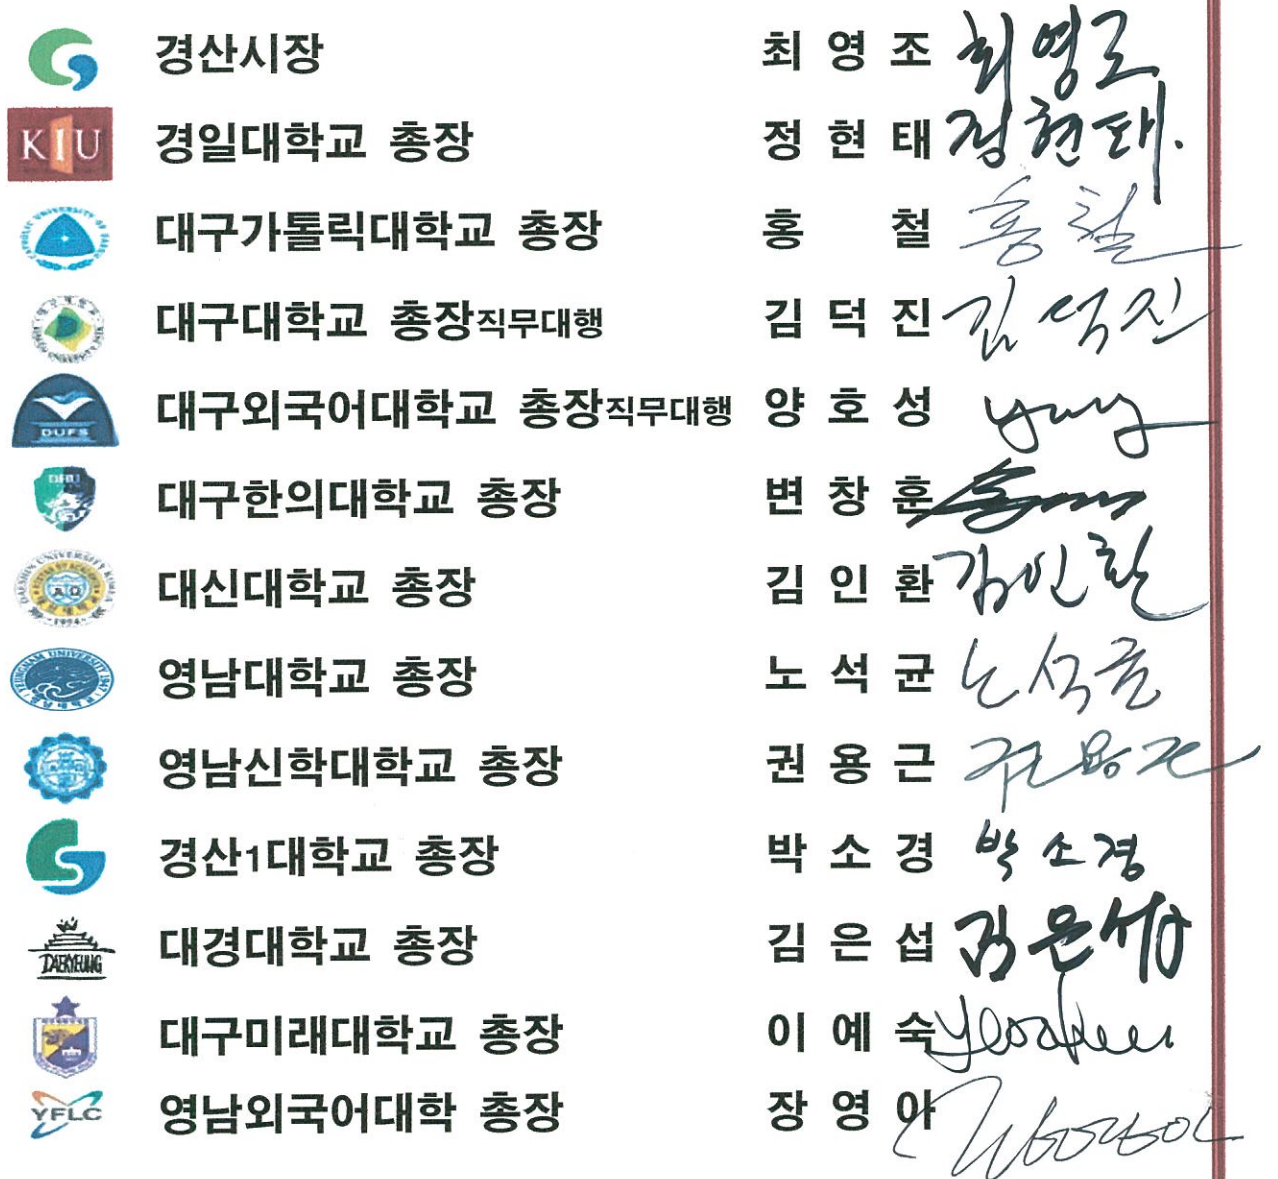 경산시장 최영조 최영조
KIU 경일대학교 총장 정현태 정현태.
대구가톨릭대학교 총장 홍 철 홍철
대구대학교 총장직무대행 김덕진 김덕진
DUFS 대구외국어대학교 총장직무대행 양호성
DHU 대구한의대학교 총장 변창훈
대신대학교 총장 김인환 김인환
YEUNGNAM UNIVERSITY 1947 영남대학교 총장 노석균 노석균
영남신학대학교 총장 권용근 권용근
경산1대학교 총장 박소경 박소경
DAEKYEUNG 대경대학교 총장 김은섭 김은섭
대구미래대학교 총장 이예숙
YFLC 영남외국어대학 총장 장영아